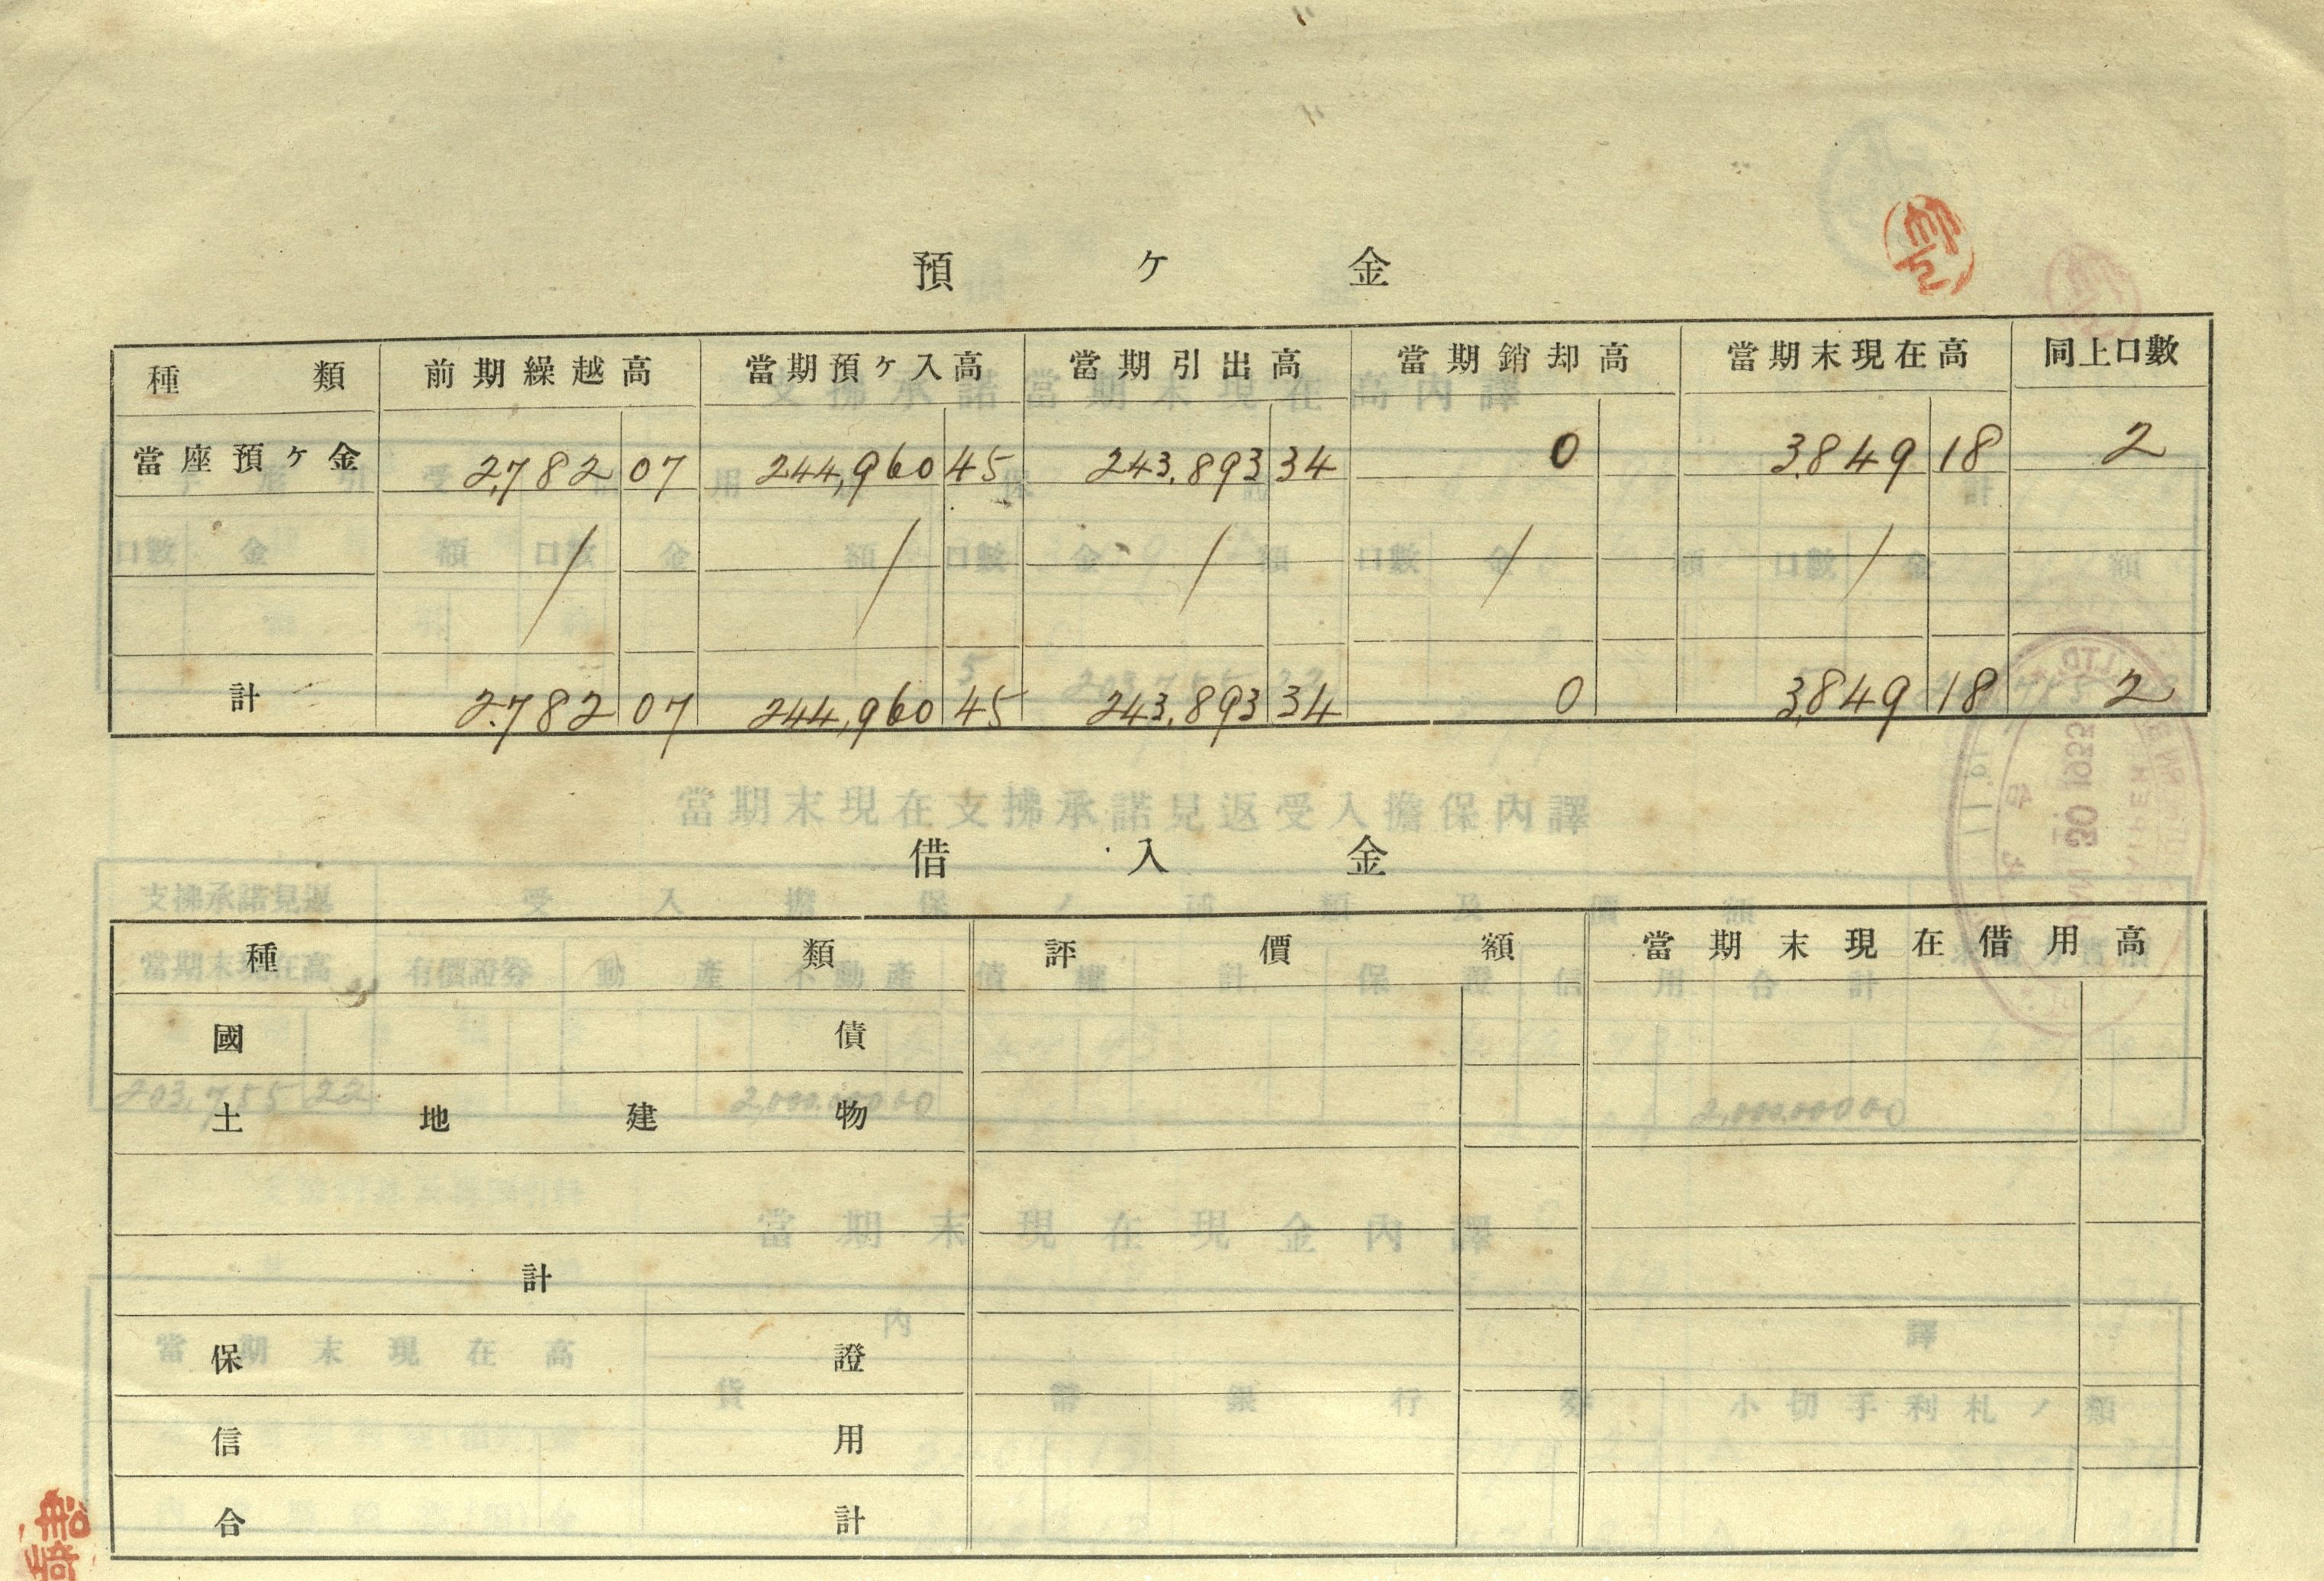 預ヶ金
種類 前期繰越高 當期預ヶ入高 當期引出高 當期銷却高 當期末現在高 同上口數
當座預ヶ金 2,782 07 244,960 45 243,893 34 0 3,849 18 2
計 2,782 07 244,960 45 243,893 34 0 3,849 18 2
借入金
種類 評價額 當期末現在借用高
國債
土地建物
計
保證
信用
合計